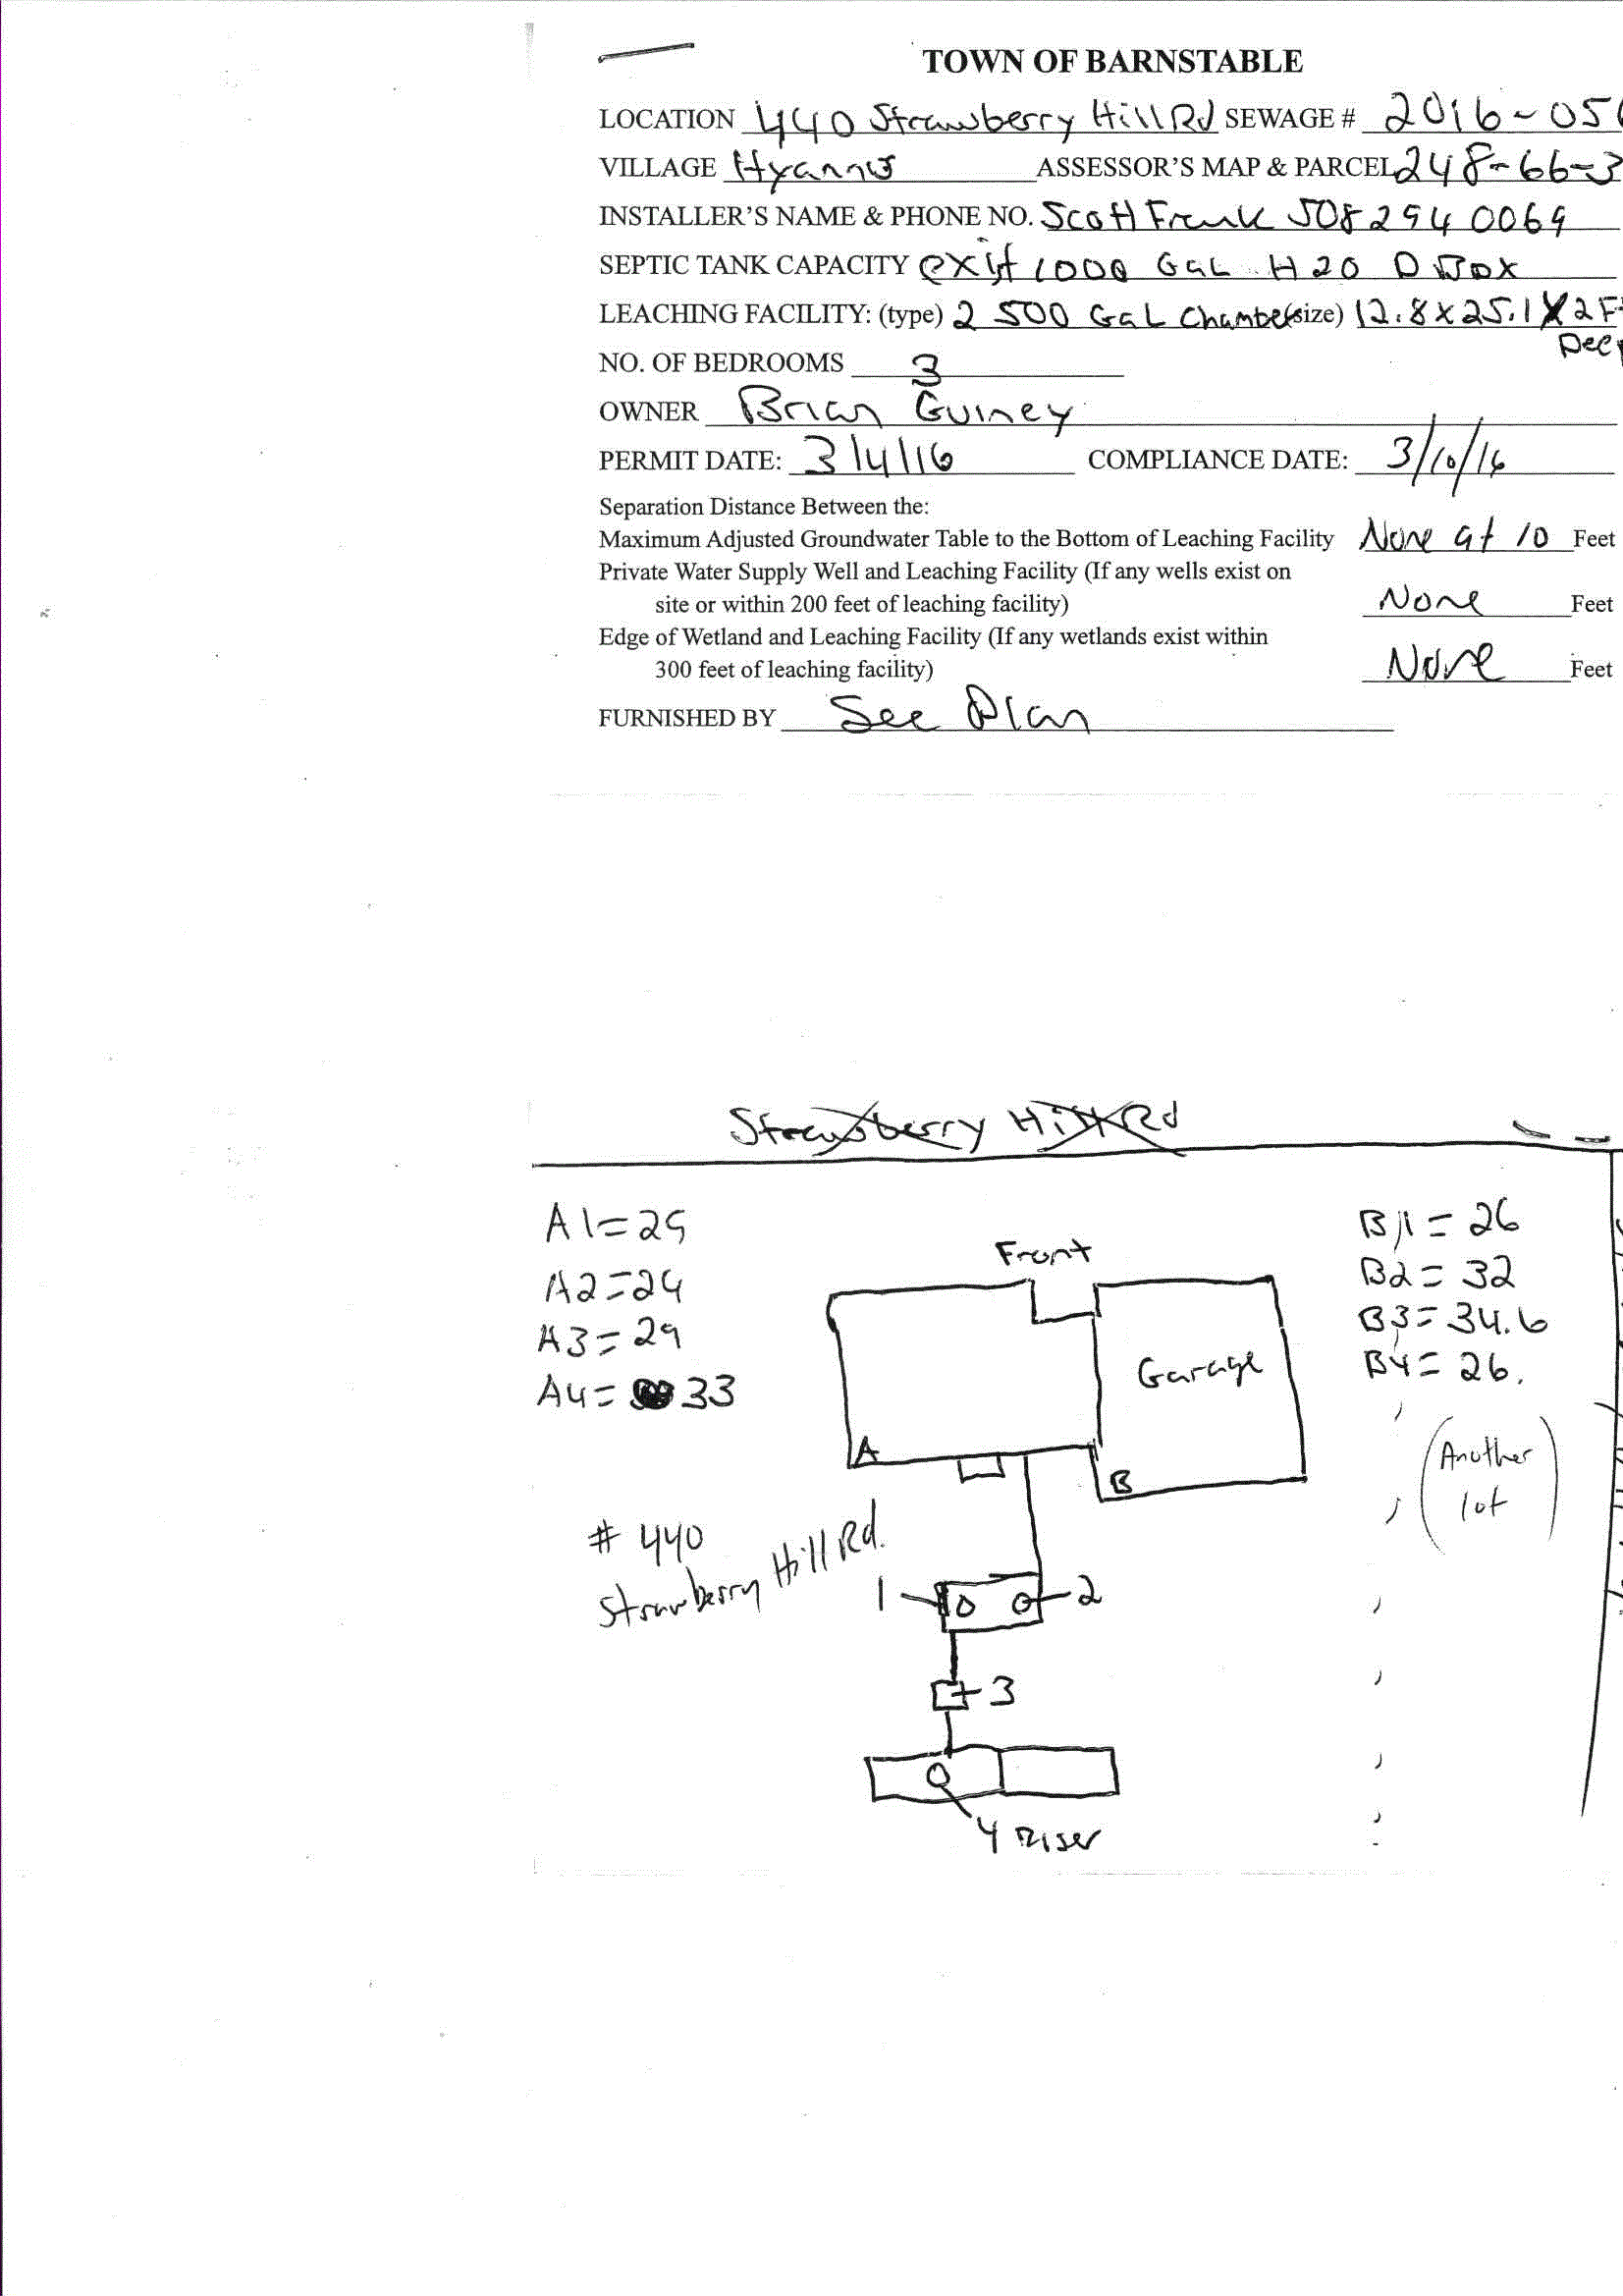 TOWN OF BARNSTABLE
LOCATION 440 Strawberry Hill Rd SEWAGE # 2016-05
VILLAGE Hyannis ASSESSOR'S MAP & PARCEL 248-66-3
INSTALLER'S NAME & PHONE NO. Scott Frank 508 294 0069
SEPTIC TANK CAPACITY exist 1000 Gal H20 D Box
LEACHING FACILITY: (type) 2 500 Gal Chamber (size) 12.8x25.1x2F
Dee
NO. OF BEDROOMS 3
OWNER Brian Guiney
PERMIT DATE: 3/4/16 COMPLIANCE DATE: 3/10/16
Separation Distance Between the:
Maximum Adjusted Groundwater Table to the Bottom of Leaching Facility None at 10 Feet
Private Water Supply Well and Leaching Facility (If any wells exist on
site or within 200 feet of leaching facility) None Feet
Edge of Wetland and Leaching Facility (If any wetlands exist within
300 feet of leaching facility) None Feet
FURNISHED BY See Plan
Strawberry Hill Rd
A1=25 B1=26
A2=24 B2=32
A3=29 B3=34.6
A4=33 B4=26.
Front
Garage
A
B
Another
lot
# 440
Strawberry Hill Rd.
1
2
3
4 Riser